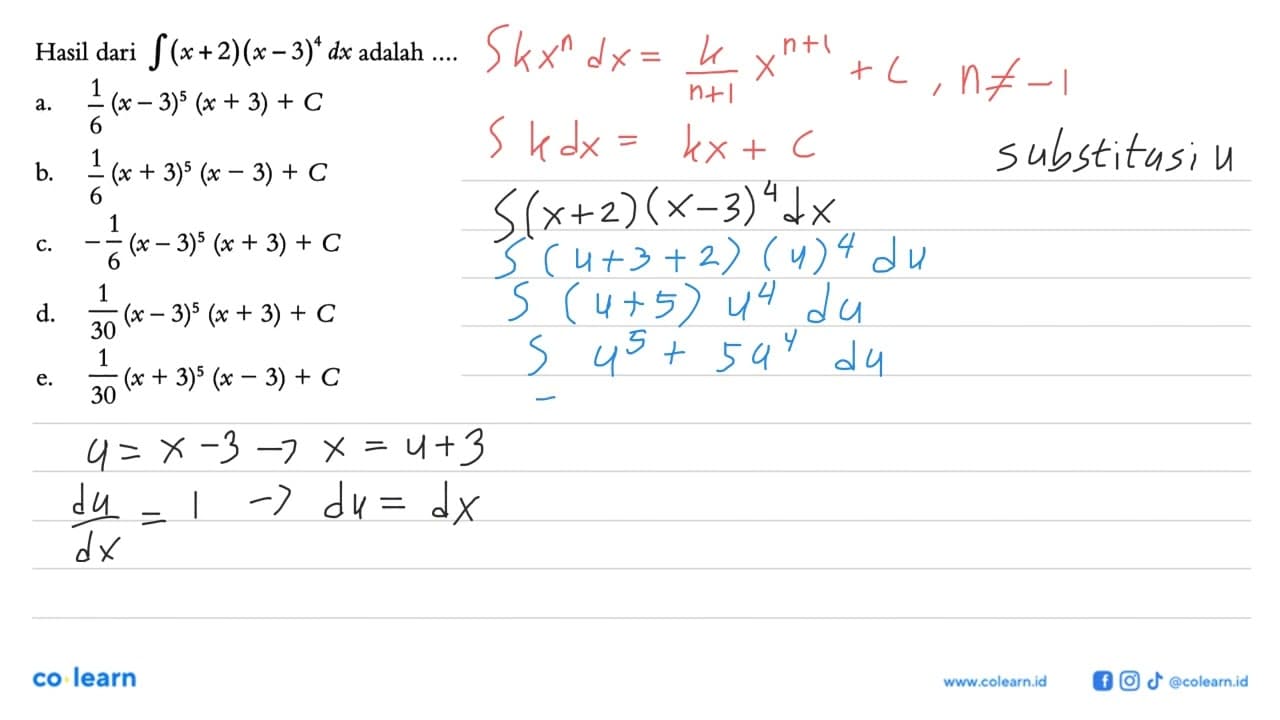 Hasil dari ∫(x+2)(x−3)⁴ dx adalah ....
a. 1/6 (x − 3)⁵ (x + 3) + C
b. 1/6 (x + 3)⁵ (x − 3) + C
c. −1/6 (x − 3)⁵ (x + 3) + C
d. 1/30 (x − 3)⁵ (x + 3) + C
e. 1/30 (x + 3)⁵ (x − 3) + C
∫kxⁿ dx = k/(n+1) xⁿ⁺¹ + C, n≠−1
∫k dx = kx + C
substitusi u
∫(x+2)(x−3)⁴dx
∫(u+3+2)(u)⁴ du
∫(u+5) u⁴ du
∫ u⁵ + 5u⁴ du
=
u = x−3 → x = u+3
du/dx = 1 → du = dx
co learn
www.colearn.id
@colearn.id